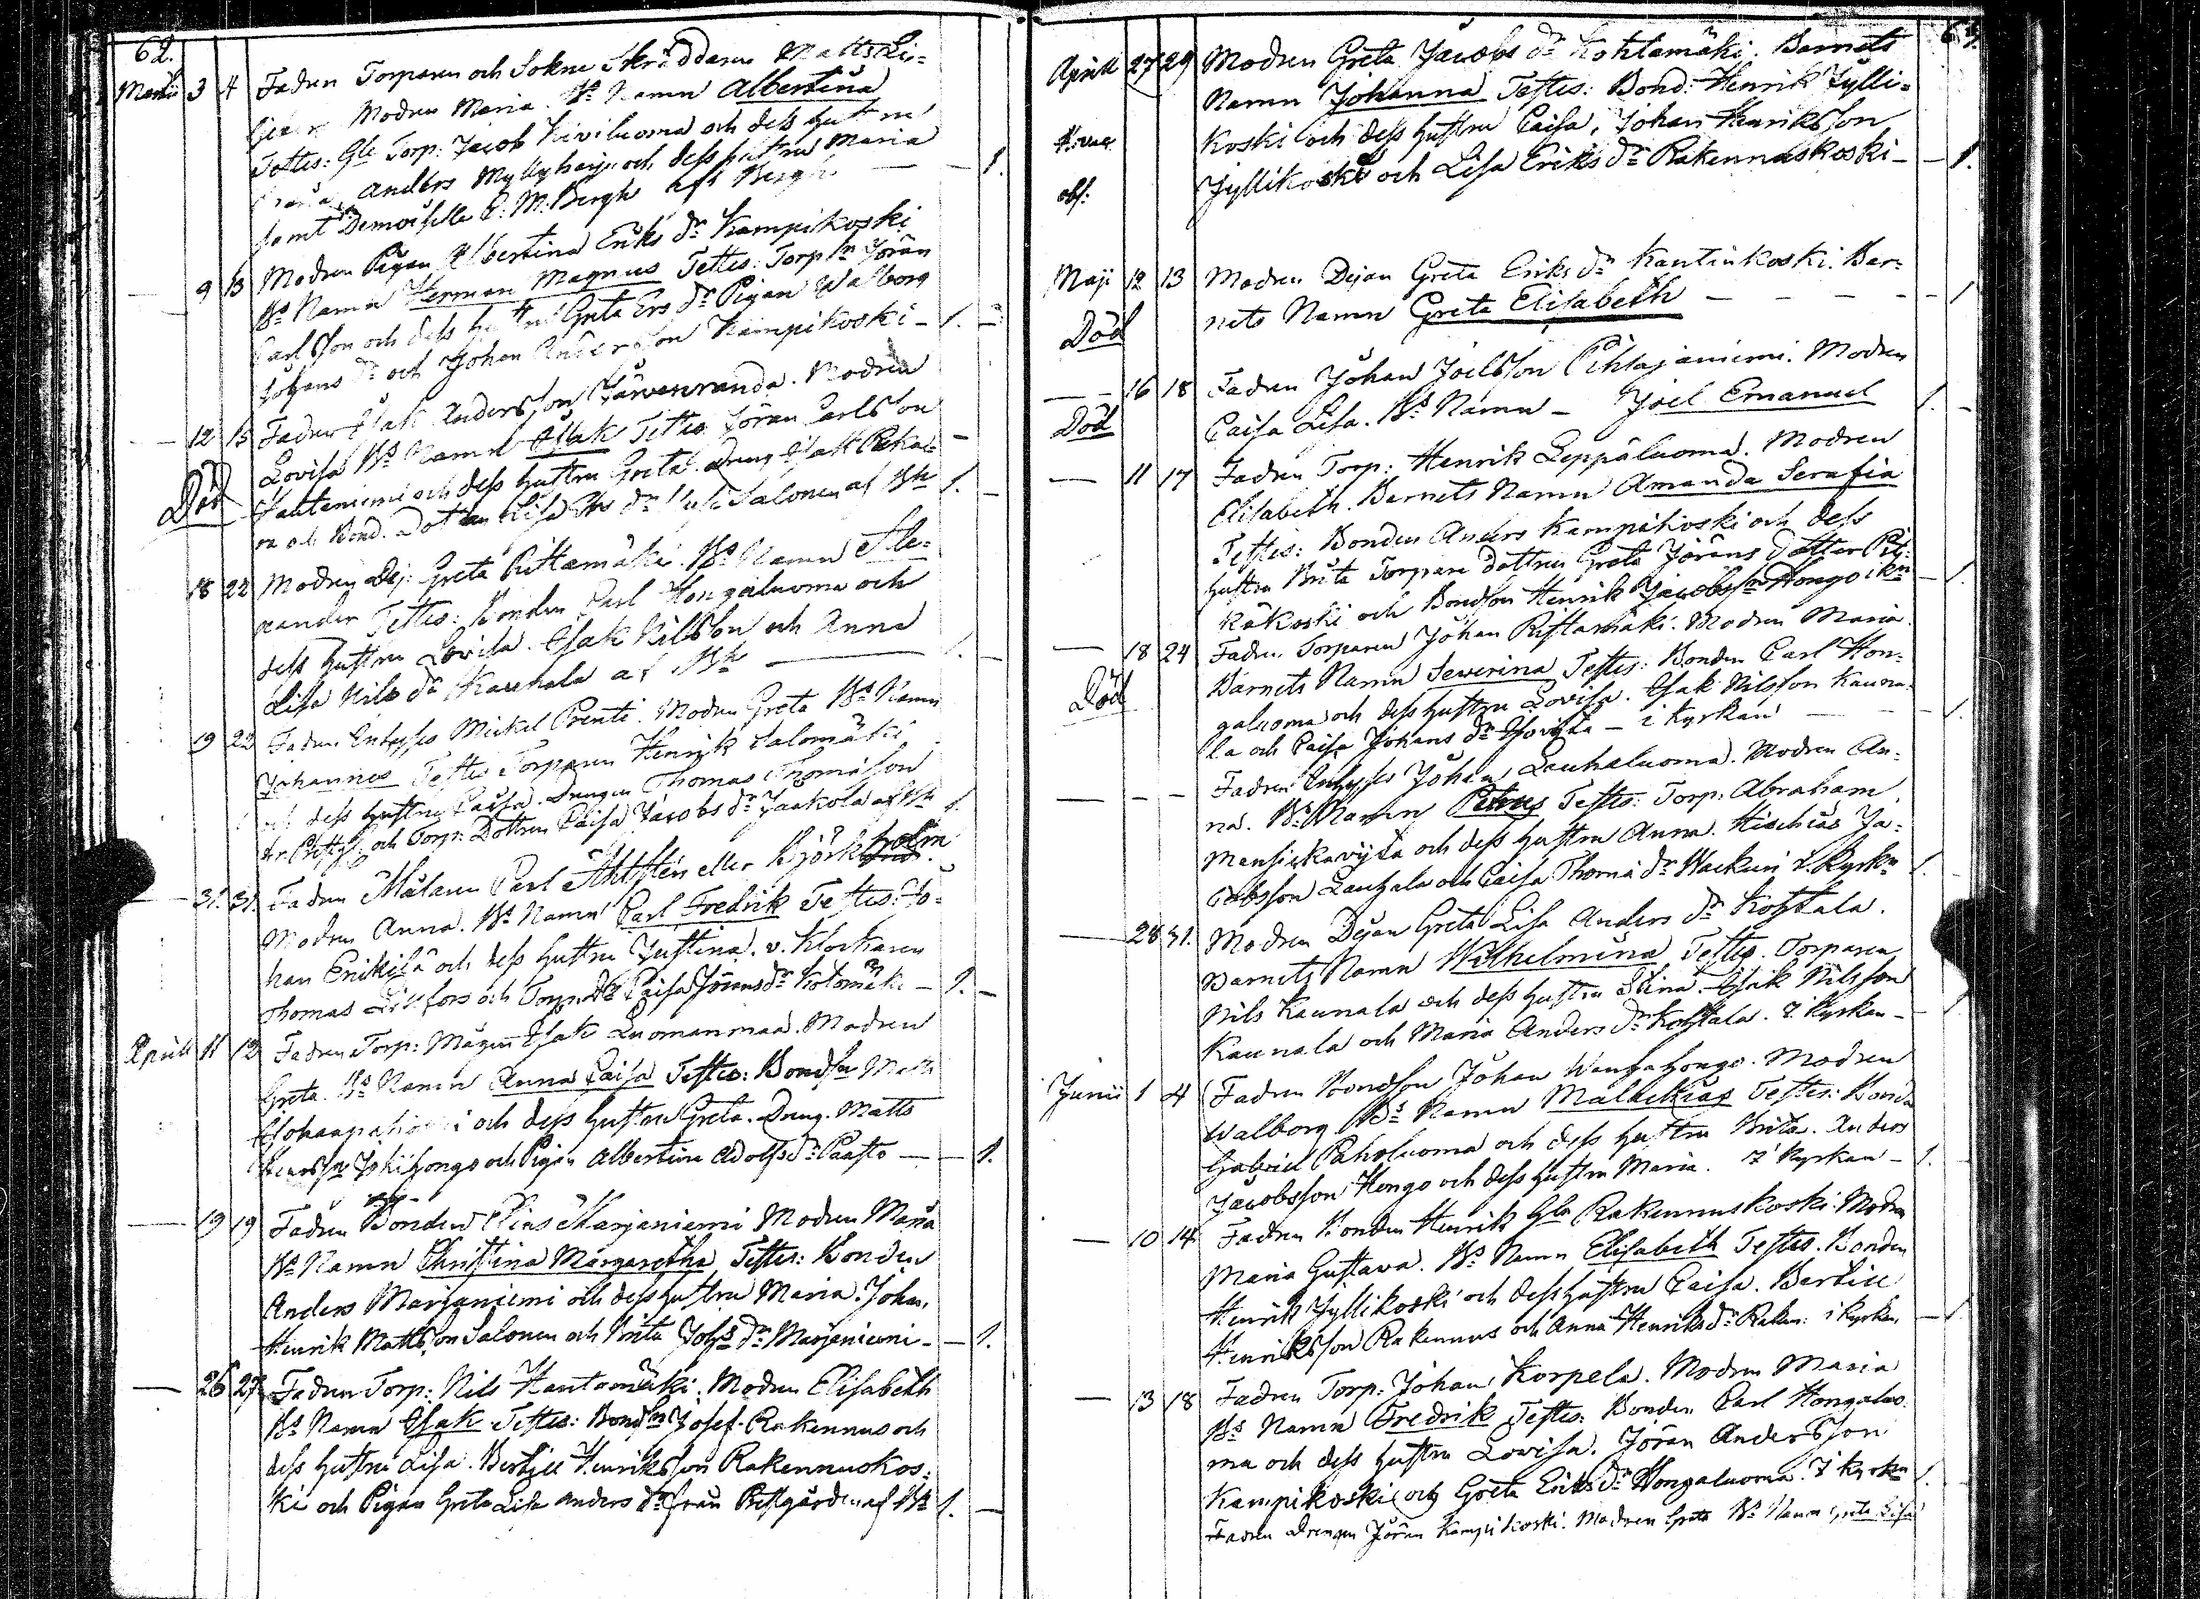 62.
Martii 3 4 Fadren Torparen och Sokne Skräddaren Matts
Modren Maria. Bs Namn Albertina
Testes: Gle Torp: Jacob Kiviluoma och dess hustru
Anders Myllyharju och dess hustru Maria
samt Demoiselle C. M. Bergh 1.
9 13 Modren Pigan Albertina Eriks dr Kampikoski
Bs Namn Herman Magnus Testes: Torp Jöran
Carlsson och dess hustru Greta Ers dr Pigan Walborg
Johans dr och Johan Andersson Kampikoski - 1. -
12 15 Fadren Isak Andersson Järvenranda. Modren
Lovisa Bs Namn Isak Testes Jöran Carlsson
Död Hautaniemi och dess hustru Greta. Dreng Isak
och Bond. Dottren Lisa dr Salonen af Bk 1. -
18 22 Modren Dej: Greta Rittamäki. Bs Namn Ale=
xander Testes: Bonden Carl Hongaluoma och
dess hustru Lovisa. Isak Nilsson och Anna
Lisa Nils dr Kaunala af Bk 1. -
19 22 Fadren Inhyses Mickel Prenti. Modren Greta Bs Namn
Johannes Testes Torparen Henrik Salomäki
och dess hustru Caisa. Drengen Thomas Thomasson
och Torp: Dottren Caisa Jacobs dr Jaakola af Bk 1.
31. 31. Fadren Målaren Carl Ahlsten eller Björkholm.
Modren Anna. Bs Namn Carl Fredrik Testes: Jo=
han Erikilä och dess hustru Justina. v. Klockaren
Thomas Lillfors och Torp. dr Caisa Jörans dr Kotomäki - 1. -
Aprill 11 12 Fadren Torp: Mågen Isak Luomanmaa. Modren
Greta. Bs Namn Anna Caisa Testes: Bondsn Matts
och dess hustru Greta. Dreng. Matts
Jskihongo och Pigan Albertina Adolfs dr Paasto - - 1.
19 19 Fadren Bonden Elias Marjaniemi Modren Maria
Bs Namn Christina Margaretha Testes: Bonden
Anders Marjaniemi och dess hustru Maria. Johan
Henrik Mattsson Salonen och Brita Johs dr Marjaniemi - - 1.
26 27 Fadren Torp: Nils Hautamäki. Modren Elisabeth
Bs Namn Isak Testes: Bondsn Josef Rakennus och
dess hustru Lisa. Bertill Henriksson Rakennuskos=
ki och Pigan Greta Lisa Anders dr från Prestgården af Bk 1. -
63.
Aprill 27 29 Modren Greta Jacobs dr Kohtamäki. Barnets
Namn Johanna Testes: Bond: Henrik Jylli=
koski och dess hustru Caisa, Johan Henriksson
obs: Jyllikoski och Lisa Eriks dr Rakennuskoski - - 1.
Maji 12 13 Modren Dejan Greta Eriks dr Kantinkoski. Bar=
nets Namn Greta Elisabeth - - - - - 1
Död
16 18 Fadren Johan Joelsson Pihlajaniemi. Modren
Död Caisa Lisa. Bs Namn - Joel Emanuel 1. -
11 17 Fadren Torp: Henrik Leppäluoma. Modren
Elisabeth. Barnets Namn Amanda Serafia
Testes: Bonden Anders Kampikoski och dess
hustru Brita Torpare dottren Greta Jörans dotter Pit=
käkoski och Bondson Henrik Jacobssn Hongo i kn - 1.
18 24 Fadren Torparen Johan Ristamäki. Modren Maria.
Barnets Namn Severina Testes: Bonden Carl Hon=
Död galuoma och dess hustru Lovisa. Isak Nilsson Kauna=
la och Caisa Johans dr - i Kyrkan 1.
- - - Fadren Inhyses Johan Lauhaluoma. Modren An=
na. Bs Namn Petrus Testes: Torp: Abraham
Mansickaviita och dess hustru Anna. Hiskias Ja=
cobsson Lauhala och Caisa Thoma dr Wackuri i Kyrkn 1.
28 31. Modren Dejan Greta Lisa Anders dr Kohtala.
Barnets Namn Wilhelmina Testes. Torparen
Nils Kaunala och dess hustru Stina. Isak Nilsson
Kaunala och Maria Anders dr Kohtala. i Kyrkan - 1
Junii 1 4 Fadren Bondson Johan Wanhahongo. Modren
Walborg Bs Namn Malakias Testes: Bonden
Gabriel Paholuoma och dess hustru Brita. Anders
Jacobsson Hongo och dess hustru Maria. i Kyrkan - 1.
10 14 Fadren Bonden Henrik Gla Rakennuskoski. Modren
Maria Gustava. Bs Namn Elisabeth Testes. Bonden
Henrik Jyllikoski och dess hustru Caisa. Bertill
Henriksson Rakennus och Anna Henriks dr Raken: i kyrkn - 1
13 18 Fadren Torp: Johan Korpela. Modren Maria
Bs Namn Fredrik Testes: Bonden Carl Hongaluo=
ma och dess hustru Lovisa. Jöran Andersson
Kampikoski och Greta Eriks dr Hongaluoma. i kyrkn 1.
Fadren Drengen Jöran Kampikoski. Modren Greta Bs Namn Greta Lisa